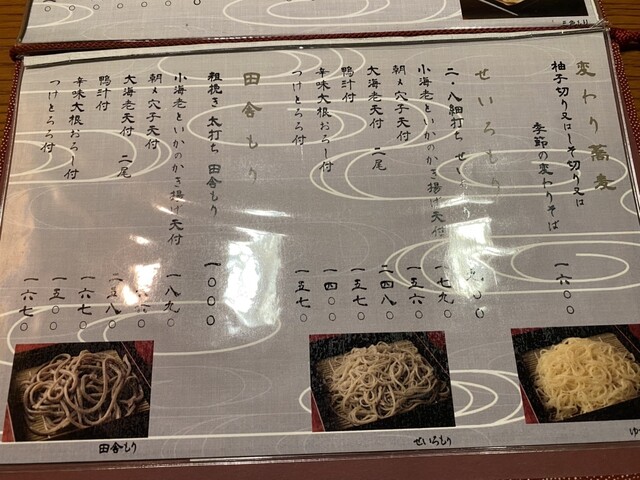 変わり蕎麦
柚子切り又はしそ切り又は
季節の変わりそば 一六〇〇
せいろもり
二・八細打ち せいろもり
小海老といかのかき揚げ天付 一七九〇
朝〆穴子天付 一五六〇
大海老天付 二尾 二四八〇
鴨汁付 一五七〇
辛味大根おろし付 一四〇〇
つけとろろ付 一五七〇
田舎もり
粗挽き 太打ち 田舎もり 一〇〇〇
小海老といかのかき揚げ天付 一八九〇
朝〆穴子天付
大海老天付 二尾 二五八〇
鴨汁付 一六七〇
辛味大根おろし付 一五〇〇
つけとろろ付 一六七〇
せいろもり
田舎もり